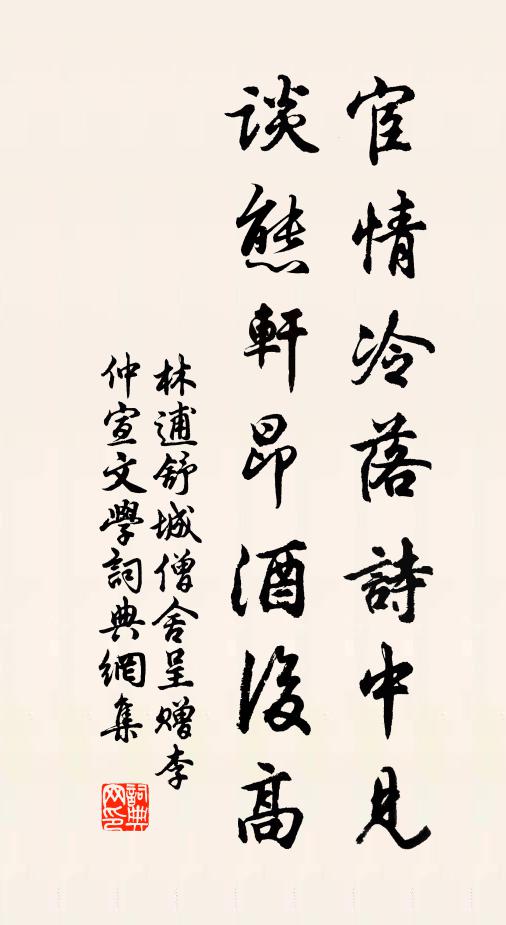 宦情冷落詩中見
談態軒昂酒後高
林逋舒城僧舍呈赠李
仲宣文學詞典網集
詞典网印